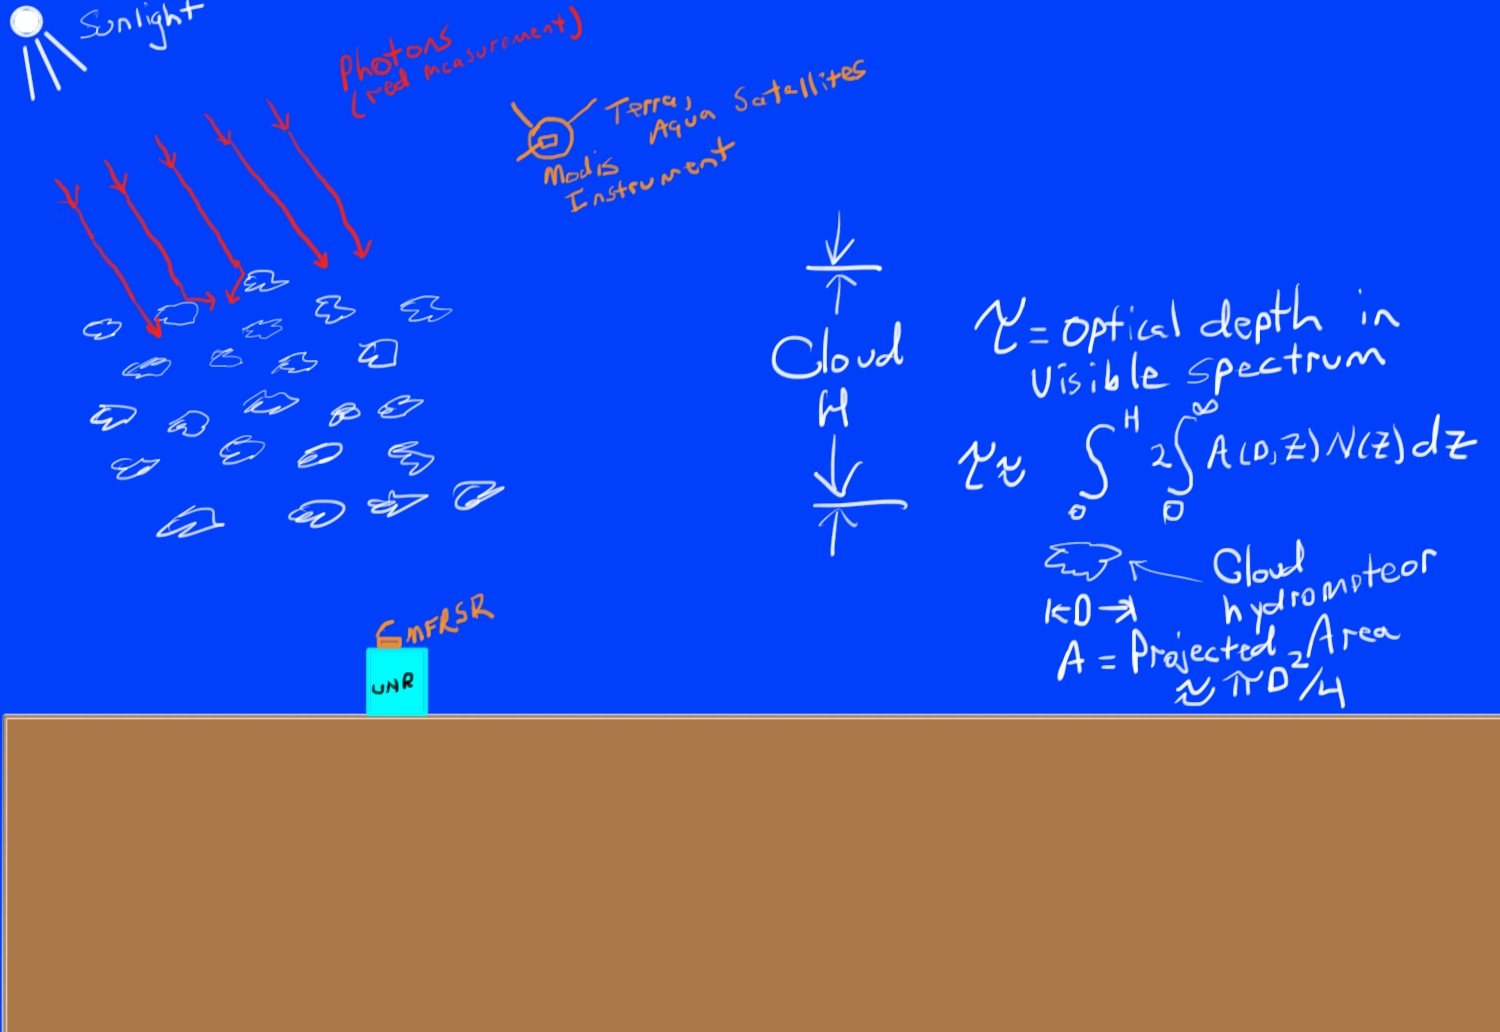 Sunlight
Photons
(red measurement)
Terra,
Aqua Satellites
Modis
Instrument
Cloud
H
τ = optical depth in
visible spectrum
τ ≈ ∫₀ᴴ 2∫₀^∞ A(D,Z) N(Z) dz
Cloud
hydrometeor
|←D→|
A = Projected Area
≈ πD²/4
MFRSR
UNR